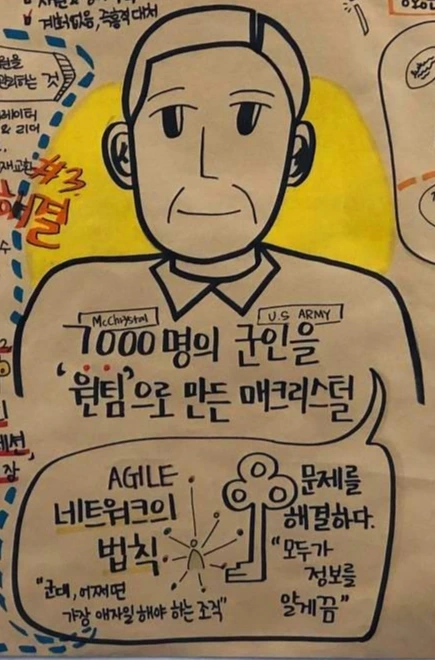 계획없음, 즉흥적 대처
#3.
해결
McChrystal
U.S ARMY
7000명의 군인을
'원팀'으로 만든 매크리스털
AGILE
네트워크의
법칙
"군대, 어쩌면
가장 애자일해야 하는 조직"
문제를
해결하다.
"모두가
정보를
알게끔"